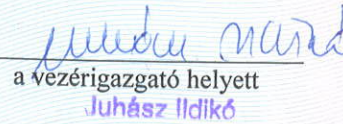 a vezérigazgató helyett
Juhász Ildikó